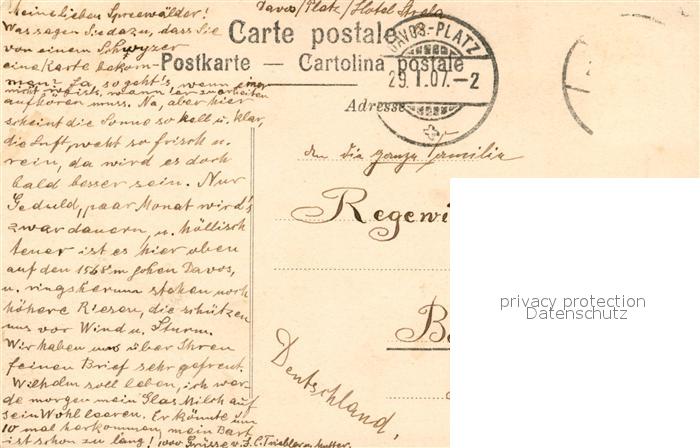 Meine lieben Spreewälder!
Davos/Platz/Hotel Strela
Was sagen Sie dazu, dass Sie
von einem Schwyzer
eine Karte bekom-
man? Ja, so geht's, wenn einer
nicht weiss, wann er zu arbeiten
aufhören muss. Na, aber hier
scheint die Sonne so hell u. klar,
die Luft, weht so frisch u.
rein, da wird es doch
bald besser sein. Nur
Geduld, paar Monat wird's
zwar dauern, u. höllisch
teuer ist es hier oben
auf den 1568 m hohen Davos,
u. ringsherum stehen noch
höhere Riesen, die schützen
uns vor Wind u. Sturm.
Wir haben uns über Ihren
feinen Brief sehr gefreut.
Wilhelm soll leben, ich wer-
de morgen mein Glas Milch auf
sein Wohl leeren. Er könnte um
10 mal herkommen, mein Bart
ist schon zu lang! 1000 Grüsse v.
Carte postale
Postkarte — Cartolina postale
DAVOS-PLATZ
29.I.07.–2
Adresse
An die ganze Familie
Regew
B
Deutschland,
privacy protection
Datenschutz